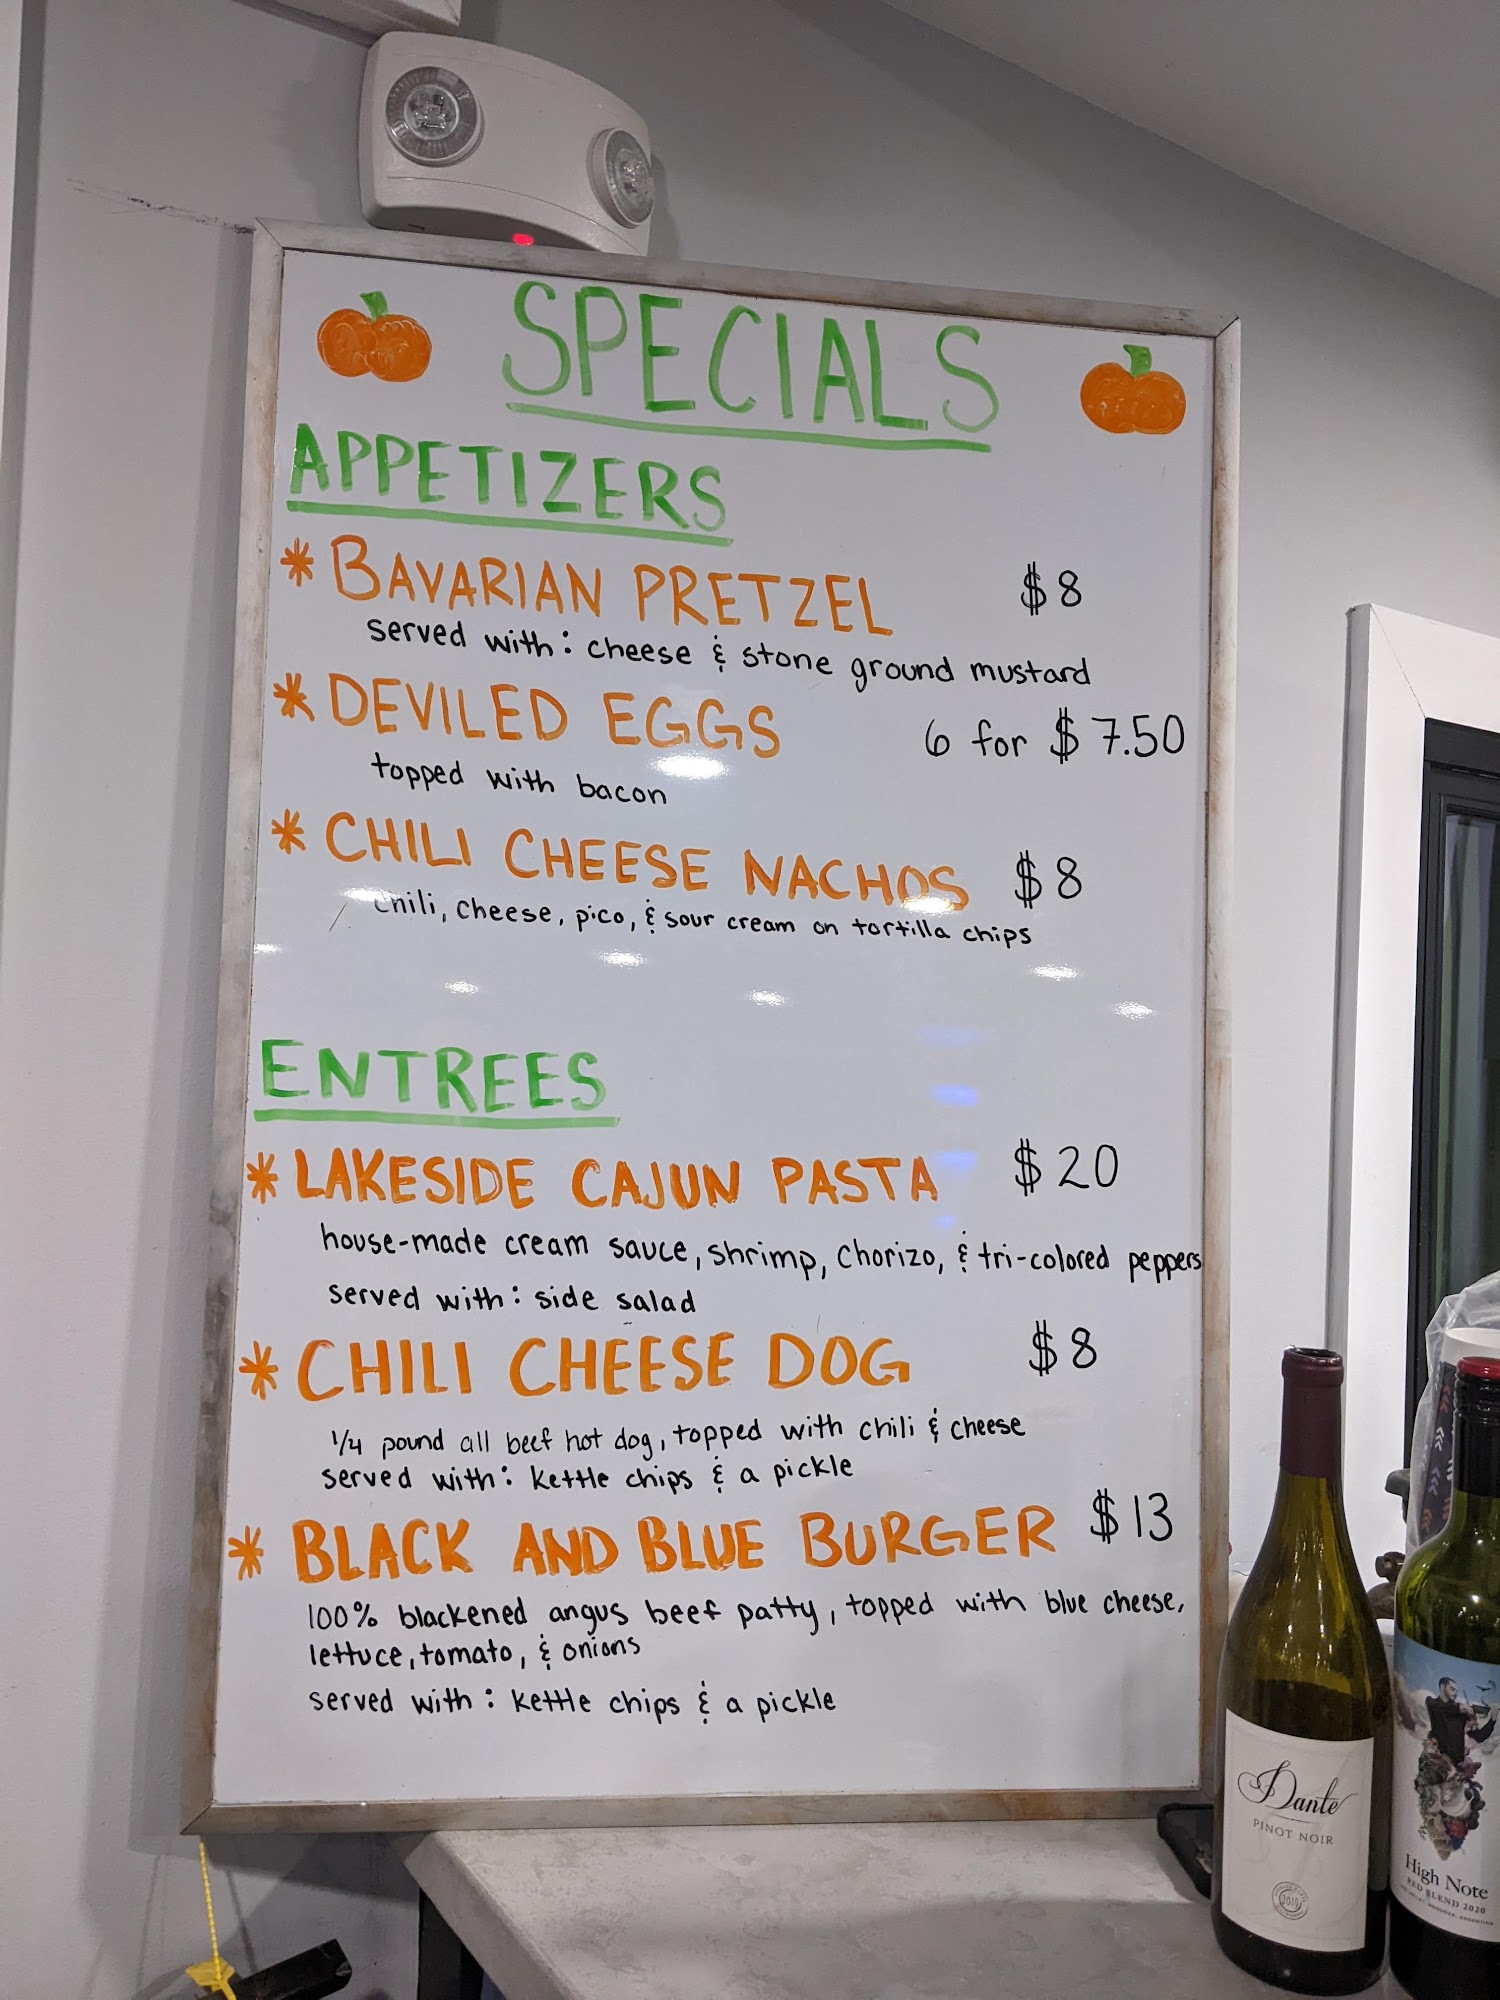 SPECIALS
APPETIZERS
* BAVARIAN PRETZEL $8
served with: cheese & stone ground mustard
* DEVILED EGGS 6 for $7.50
topped with bacon
* CHILI CHEESE NACHOS $8
chili, cheese, pico, & sour cream on tortilla chips
ENTREES
* LAKESIDE CAJUN PASTA $20
house-made cream sauce, shrimp, chorizo, & tri-colored peppers
served with: side salad
* CHILI CHEESE DOG $8
1/4 pound all beef hot dog, topped with chili & cheese
served with: kettle chips & a pickle
* BLACK AND BLUE BURGER $13
100% blackened angus beef patty, topped with blue cheese,
lettuce, tomato, & onions
served with: kettle chips & a pickle
Dante
PINOT NOIR
2019
High Note
RED BLEND 2020